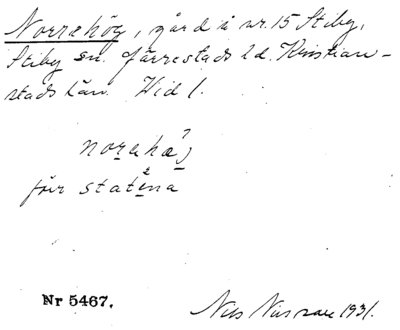 Norrehög, gård å nr. 15 Stiby,
Stiby sn. Järrestads hd. Kristian-
stads län. Hid 1.
för statena
Nr 5467.
Nils 1931.